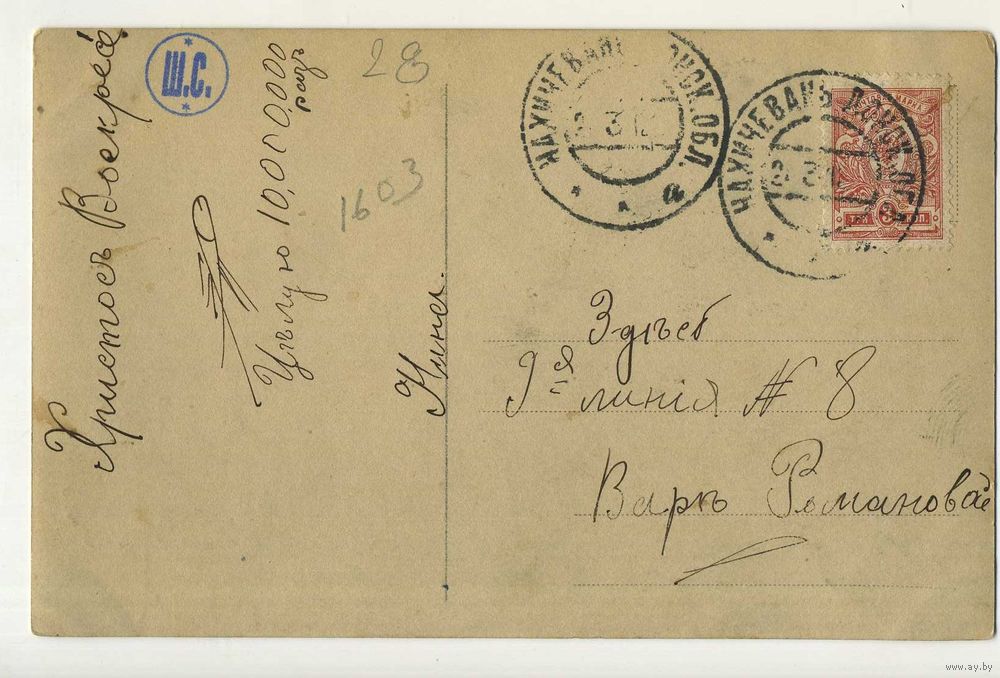 Христосъ Воскресе
Цѣлую 10,000,000
разъ
Нина.
Ш.С.
28
1603
НАХИЧЕВАНЬ ДОНСК.ОБЛ.
а
НАХИЧЕВАНЬ
МАРКА
ТРИ 3 КОП
Здѣсь
9ая линія № 8
Варѣ Романовой
www.ay.by